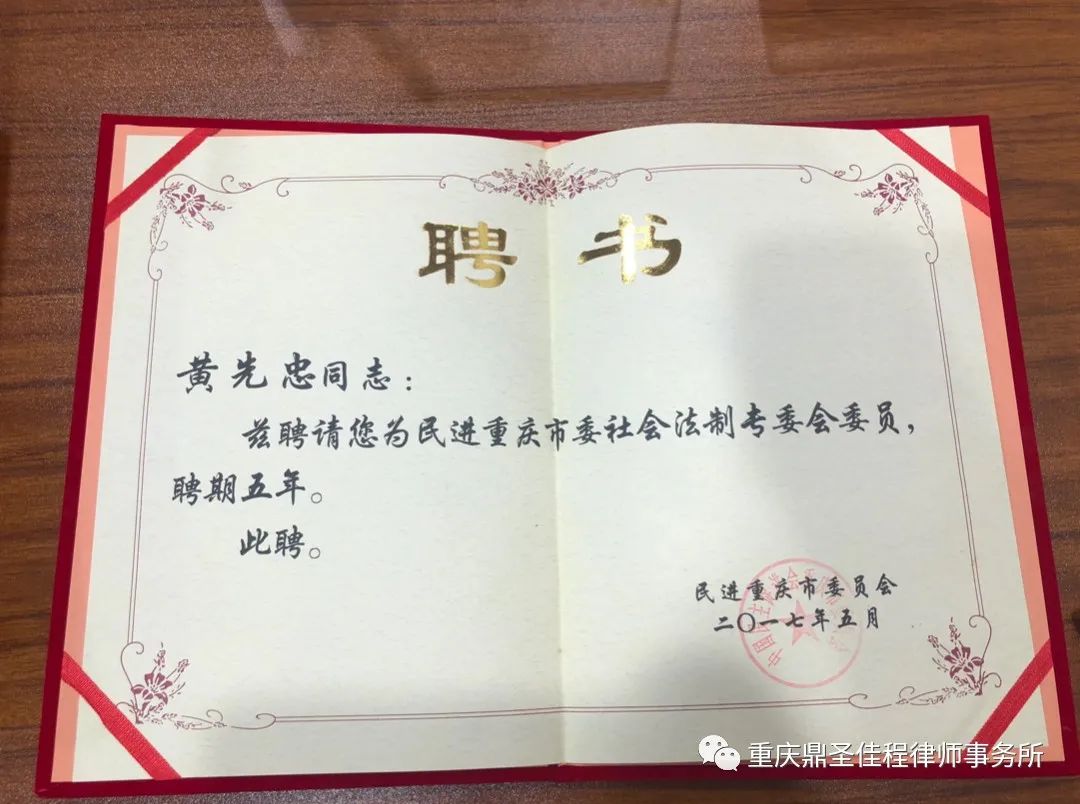 聘书
黄先忠同志：
兹聘请您为民进重庆市委社会法制专委会委员，
聘期五年。
此聘。
民进重庆市委员会
二〇一七年五月
重庆鼎圣佳程律师事务所